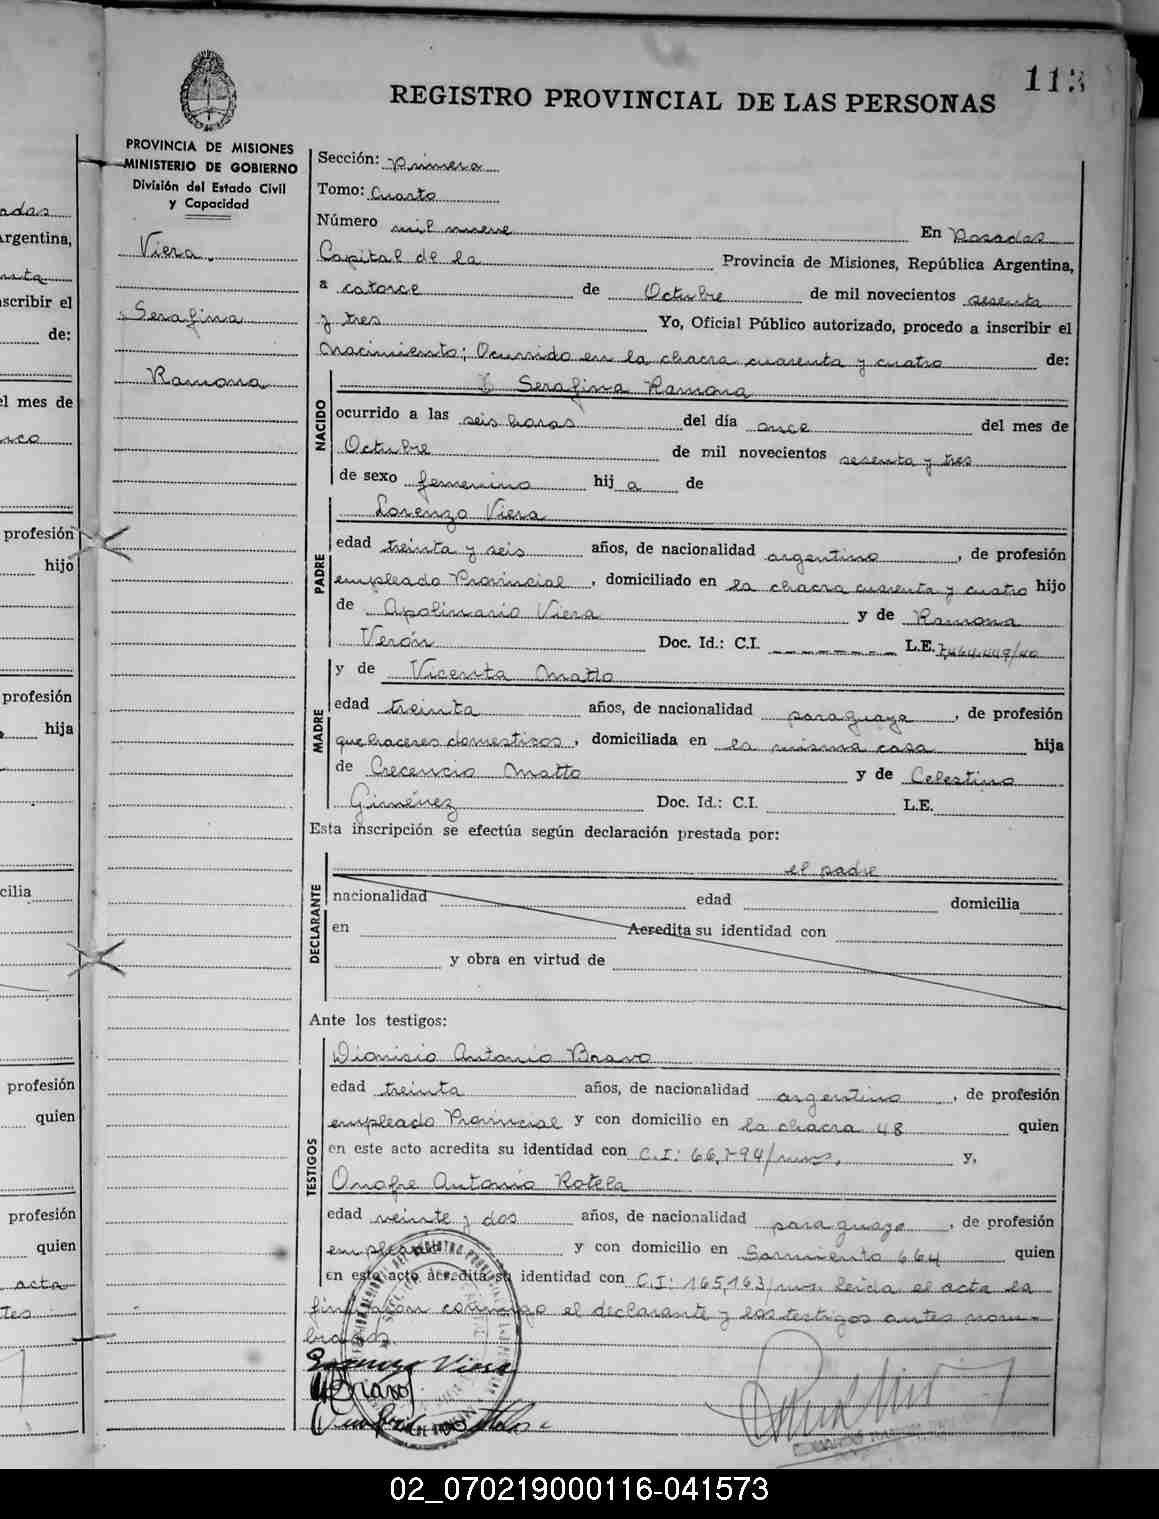 113
REGISTRO PROVINCIAL DE LAS PERSONAS
PROVINCIA DE MISIONES
MINISTERIO DE GOBIERNO
División del Estado Civil
y Capacidad
Viera
Serafina
Ramona
Sección: primera
Tomo: Cuarto
Número mil nueve En Posadas
Capital de la Provincia de Misiones, República Argentina,
a catorce de Octubre de mil novecientos sesenta
y tres Yo, Oficial Público autorizado, procedo a inscribir el
Nacimiento; Ocurrido en la chacra cuarenta y cuatro de:
NACIDO
Serafina Ramona
ocurrido a las seis horas del día once del mes de
Octubre de mil novecientos sesenta y tres
de sexo femenino hij a de
PADRE
Lorenzo Viera
edad treinta y seis años, de nacionalidad argentino, de profesión
empleado Provincial, domiciliado en la chacra cuarenta y cuatro hijo
de Apolinario Viera y de Ramona
Verón Doc. Id.: C.I. L.E.
MADRE
y de Vicenta Matto
edad treinta años, de nacionalidad paraguaya, de profesión
quehaceres domesticos, domiciliada en la misma casa hija
de Crecencio Matto y de Celestina
Giménez Doc. Id.: C.I. L.E.
Esta inscripción se efectúa según declaración prestada por:
DECLARANTE
el padre
nacionalidad edad domicilia
en Acredita su identidad con
y obra en virtud de
Ante los testigos:
TESTIGOS
Dionisio Antonio Bravo
edad treinta años, de nacionalidad argentino, de profesión
empleado Provincial y con domicilio en la chacra 48 quien
en este acto acredita su identidad con C.I: y,
Onofre Antonio Rotela
edad veinte y dos años, de nacionalidad paraguayo, de profesión
empleado y con domicilio en Sarmiento 664 quien
en este acto acredita su identidad con C.I: 165,163/mnes. leida el acta la
firmaron conmigo el declarante y los testigos antes nom-
brados.
Lorenzo Viera
Bravo
adas
rgentina,
nta
scribir el
de:
el mes de
nco
profesión
hijo
profesión
hija
cilia
profesión
quien
profesión
quien
acta
tes
02_070219000116-041573